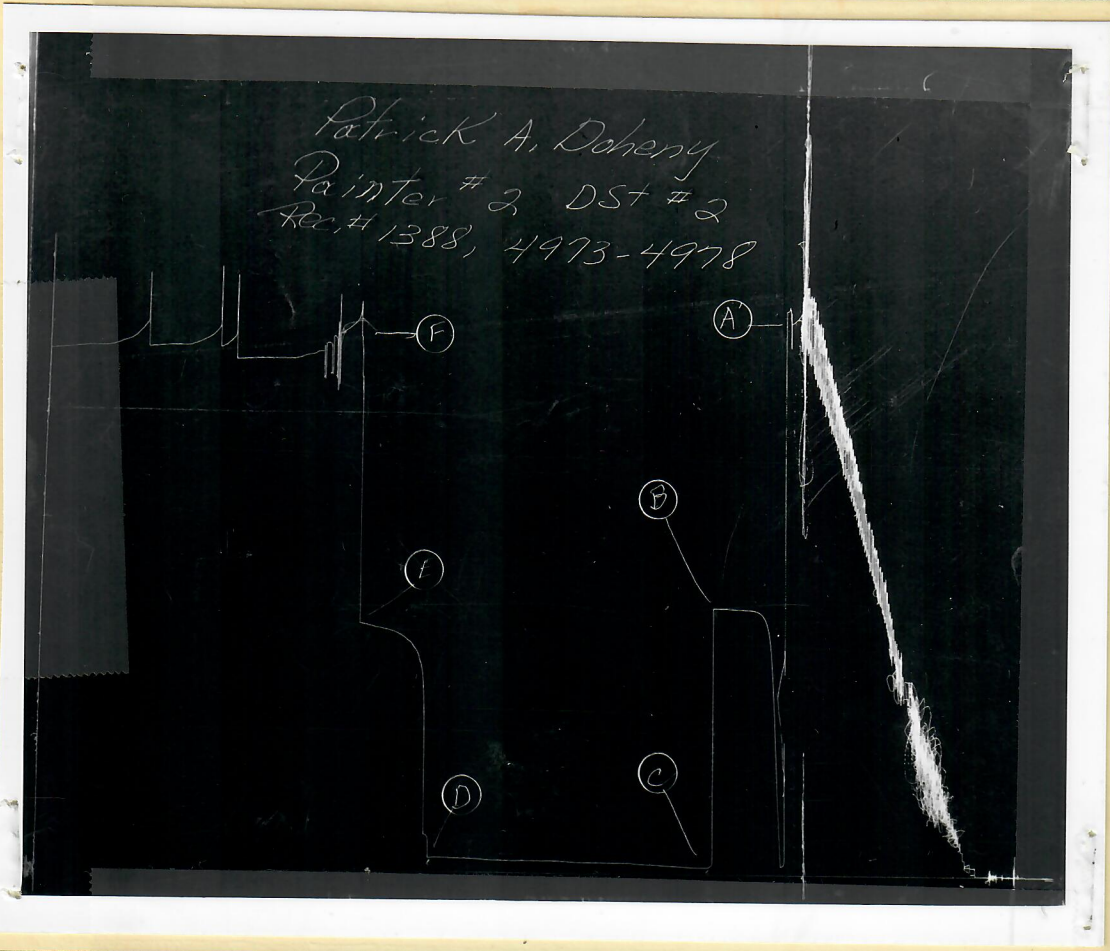 Patrick A. Doheny
Painter #2 DSt #2
Rec.# 1388, 4973-4978
F
A
B
E
D
C